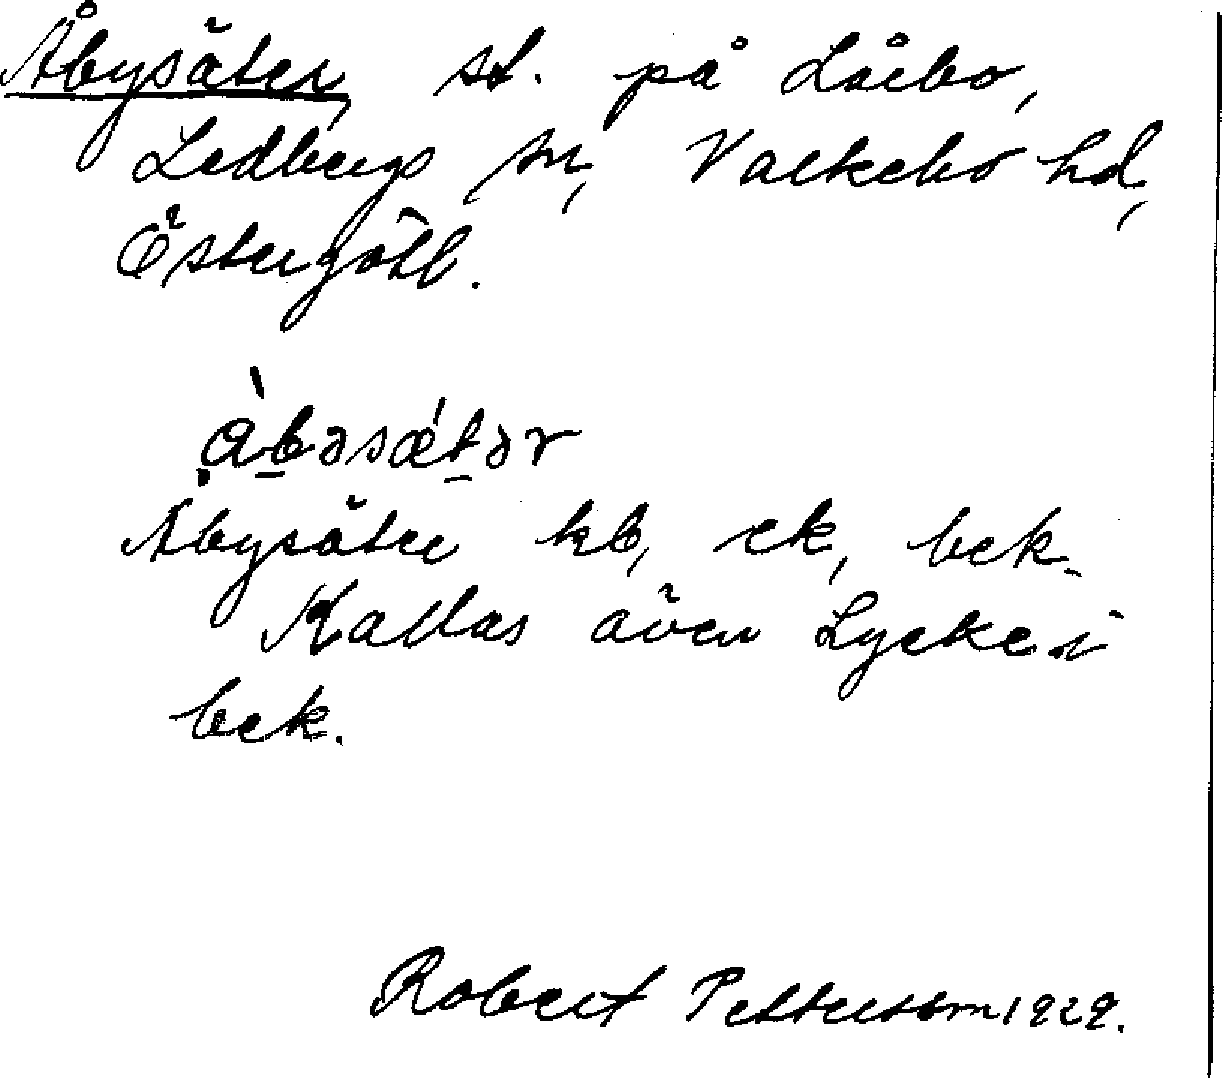 Åbysäter, st. på Låebo,
Ledbergs sn, Valkebo hd,
Östergötl.
ὰbəsǽtər
Åbysäter kb, ek, bek.
Kallas även Lycke i
bek.
Robert Petterson 1929.